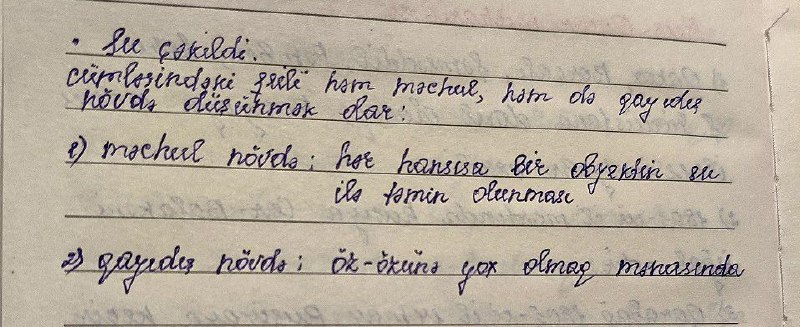 • Su çəkildi.
cümləsindəki feili həm məchul, həm də qayıdış
növdə düşünmək olar:
1) məchul növdə; hər hansısa bir obyektin su
ilə təmin olunması
2) qayıdış növdə; öz-özünə yox olmaq mənasında